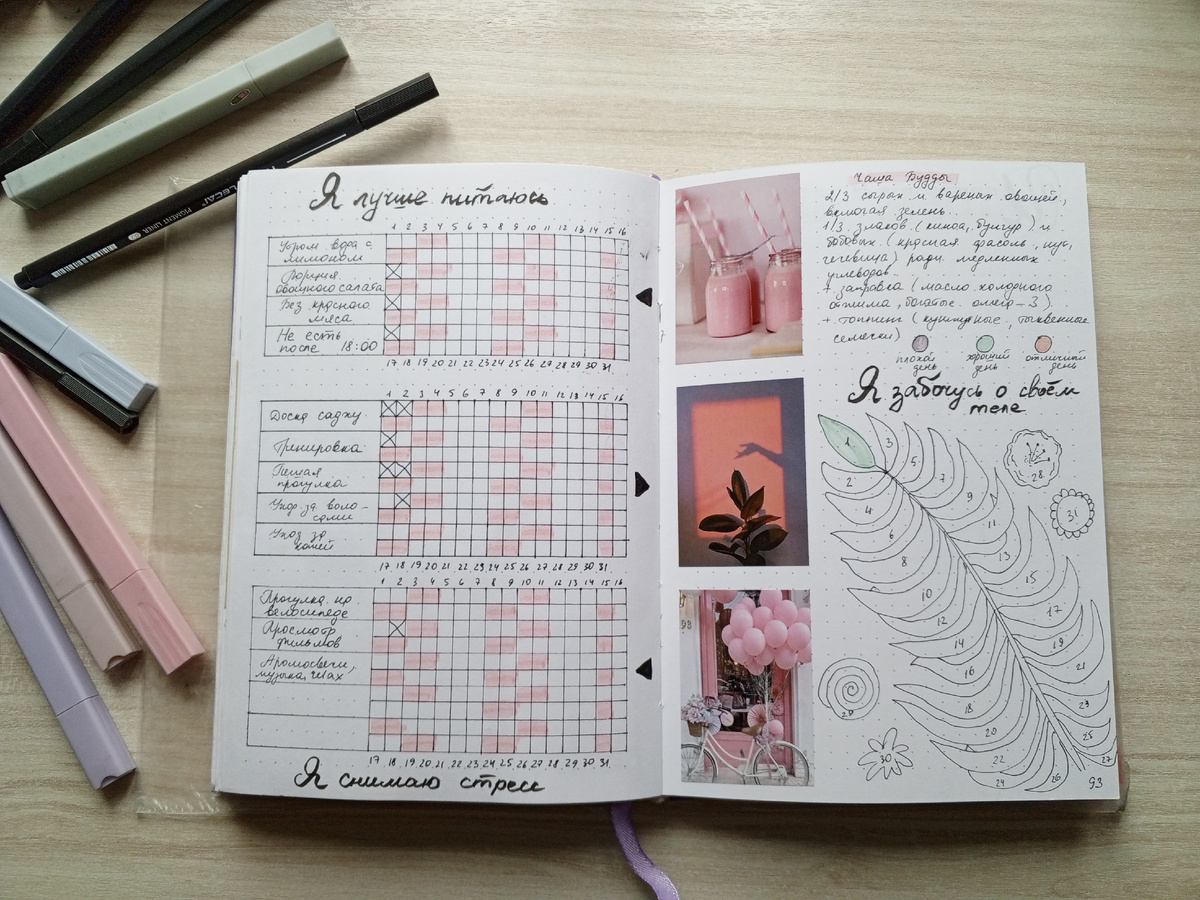 LECAI PIGMENT LINER
Я лучше питаюсь
1 2 3 4 5 6 7 8 9 10 11 12 13 14 15 16
Утром вода с
лимоном
Порция
овощного салата
Без красного
мяса
Не есть
после 18:00
17 18 19 20 21 22 23 24 25 26 27 28 29 30 31
1 2 3 4 5 6 7 8 9 10 11 12 13 14 15 16
Доска садху
Тренировка
Пешая
прогулка
Уход за воло-
сами
Уход за
кожей
17 18 19 20 21 22 23 24 25 26 27 28 29 30 31
1 2 3 4 5 6 7 8 9 10 11 12 13 14 15 16
Прогулка на
велосипеде
Просмотр
фильмов
Аромасвечи,
музыка, чтах
17 18 19 20 21 22 23 24 25 26 27 28 29 30 31
Я снимаю стресс
93
Чаша Будды
2/3 сырых и вареных овощей,
включая зелень
1/3 злаков (киноа, булгур) и
бобовых (красная фасоль, нут,
чечевица) ради медленных
углеводов
+ заправка (масло холодного
отжима, богатые омега-3)
+ топпинг (кунжутные, тыквенные
семечки)
плохой день
хороший день
отличный день
Я забочусь о своём
теле
1 2 3 4 5 6 7 8 9 10 11 12 13 14 15 16 17 18 19 20 21 22 23 24 25 26 27 28 29 30 31
93